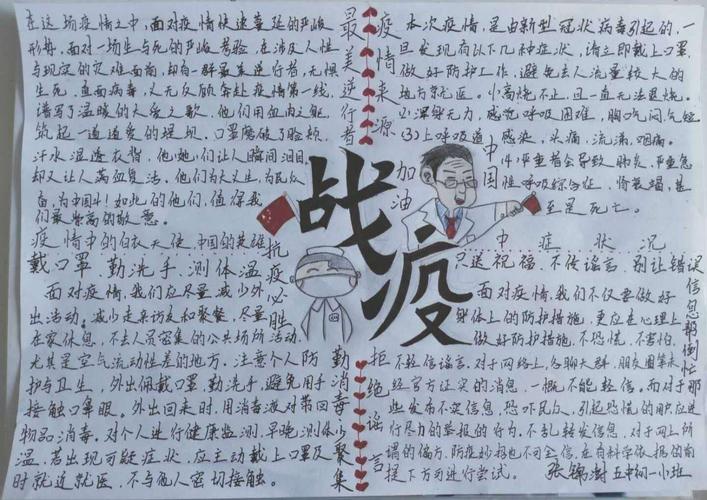 最美逆行者
在这场疫情之中，面对疫情快速蔓延的严峻
形势，面对一场生与死的严峻考验，在涉及人性
与现实的灾难面前，却有一群最美逆行者，无惧
生死，直面病毒，义无反顾奔赴疫情第一线，
谱写了温暖的大爱之歌。他们用血肉之躯，
筑起一道道爱的堤坝。口罩磨破了脸颊，
汗水湿透衣背，他/她们让人瞬间泪目，
却又让人满血复活。他们为大义生，为民众
奋，为中国斗！如此的他们，值得我
们最崇高的敬意。
疫情中的白衣天使，中国的英雄
疫情来源
本次疫情，是由新型冠状病毒引起的，一
旦发现有以下几种症状，请立即戴上口罩，
做好防护工作，避免去人流量较大的
地方就医。⑴高烧不止，且一直无法退烧。
⑵浑身无力，感觉呼吸困难，胸口气闷气短
⑶上呼吸道感染，头痛，流涕，咽痛。
⑷严重者会导致肺炎，严重急
性呼吸综合症，肾衰竭，甚
至是死亡。
中国
加油
战疫
抗疫必胜
戴口罩、勤洗手、测体温
面对疫情，我们应尽量减少外
出活动。减少走亲访友和聚餐，尽量
在家休息，不去人员密集的公共场所活动，
尤其是空气流动性差的地方。注意个人防
护与卫生，外出佩戴口罩，勤洗手，避免用手
接触口鼻眼。外出回来时，用消毒液对带回
物品消毒，对个人进行健康监测，早晚测体
温，若出现可疑症状，应主动戴上口罩及
时就近就医，不与他人密切接触。
勤消毒少聚集
中症状况
只送祝福，不传谣言，别让错误
信息帮倒忙
面对疫情，我们不仅要做好
身体上的防护措施，更应在心理上
做好防护措施，不恐慌，不害怕，
不轻信谣言，对于网络上，各聊天群，朋友圈等未
经官方证实的消息，一概不能轻信。而对于那
些发布不实信息，恐吓民众，引起恐慌的职应进
行尽力的举报的行为，不乱转发信息，对于网上所
谓的偏方，防疫妙招也不可全信，在有科学依据的前
提下方可进行尝试。
拒绝谣言
张锦澍 五中初一小班